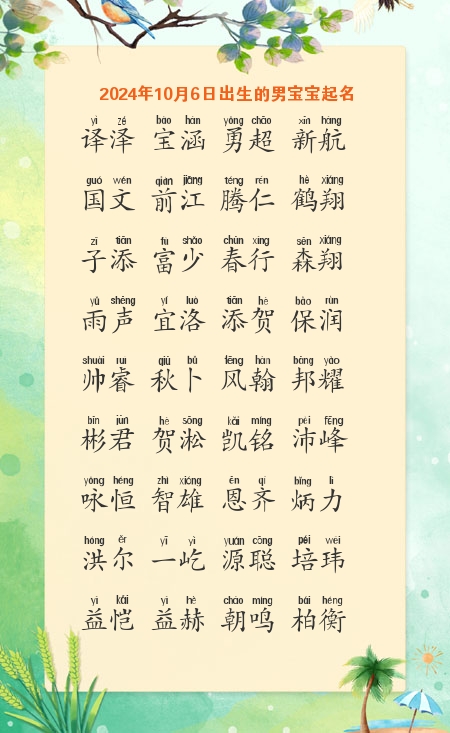 2024年10月6日出生的男宝宝起名
yì zé bǎo hán yǒng chāo xīn háng
译泽 宝涵 勇超 新航
guó wén qián jiāng téng rén hè xiáng
国文 前江 腾仁 鹤翔
zǐ tiān fù shǎo chūn xíng sēn xiáng
子添 富少 春行 森翔
yǔ shēng yí luò tiān hè bǎo rùn
雨声 宜洛 添贺 保润
shuài ruì qiū bǔ fēng hàn bāng yào
帅睿 秋卜 风翰 邦耀
bīn jūn hè sōng kǎi míng pèi fēng
彬君 贺淞 凯铭 沛峰
yǒng héng zhì xióng ēn qí bǐng lì
咏恒 智雄 恩齐 炳力
hóng ěr yī yì yuán cōng péi wěi
洪尔 一屹 源聪 培玮
yì kǎi yì hè cháo míng bǎi héng
益恺 益赫 朝鸣 柏衡